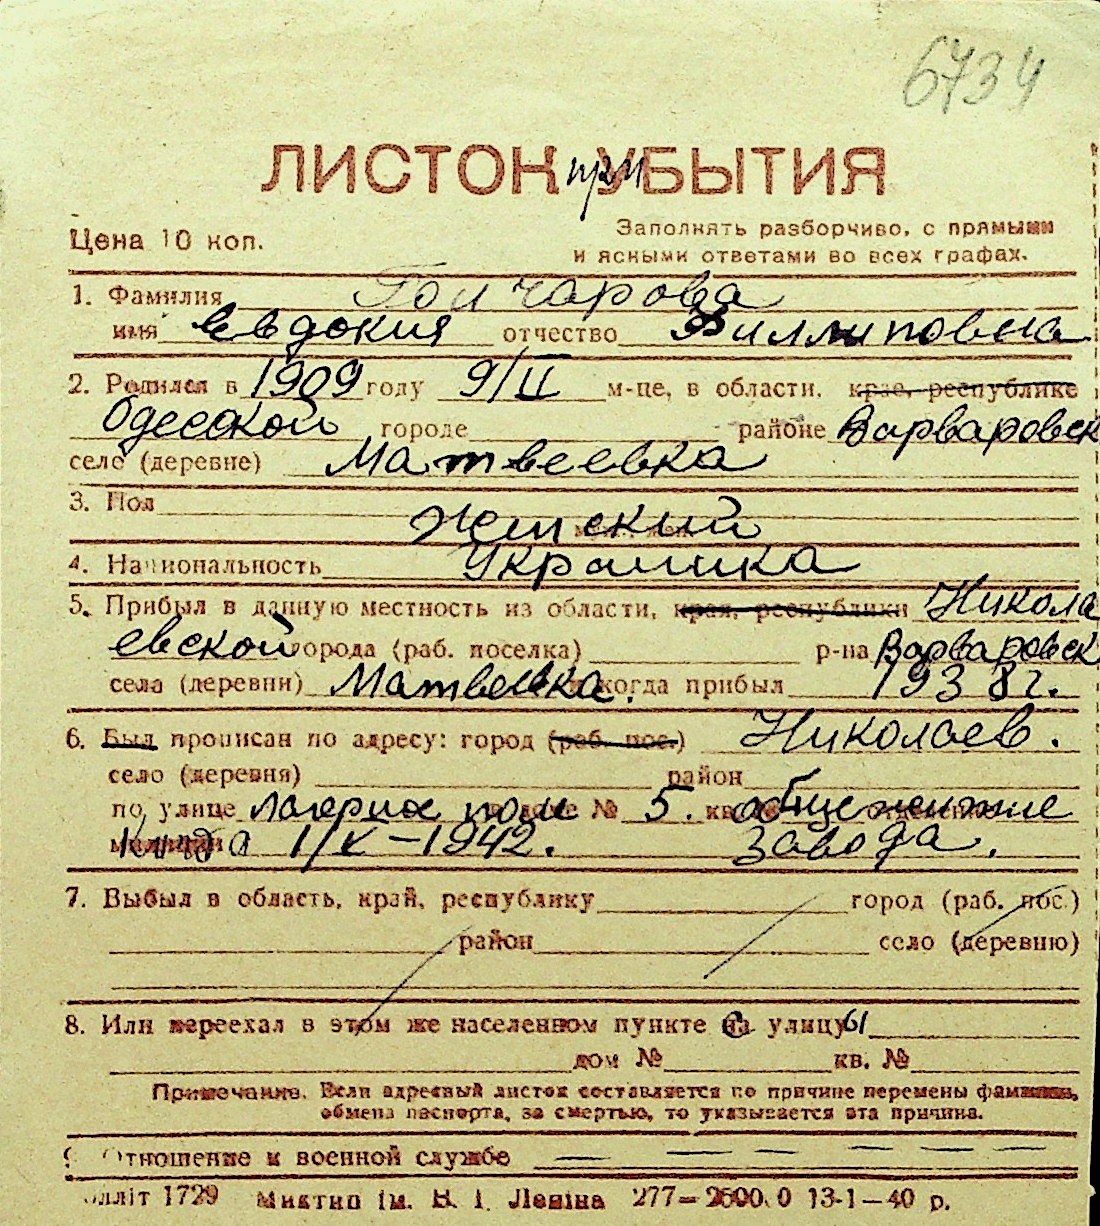 6734
ЛИСТОК при УБЫТИЯ
Цена 10 коп.
Заполнять разборчиво, с прямыми
и ясными ответами во всех графах.
1. Фамилия Гончарова
имя Евдокия отчество Филлиповна
2. Родился в 1909 году 9/II м-це, в области, крае, республике
Одесской городе районе Варваровск
село (деревне) Матвеевка
3. Пол Женский
4. Национальность Украинка
5. Прибыл в данную местность из области, края, республики Никола
евской города (раб. поселка) р-на Варваровск
села (деревни) Матвеевка. когда прибыл 1938 г.
6. Был прописан по адресу: город (раб. пос.) Николаев.
село (деревня) район
по улице Лагерное поле № 5. кв. общежитие
1/X-1942. завода.
7. Выбыл в область, край, республику город (раб. пос.)
район село (деревню)
8. Или переехал в этом же населенном пункте с улицы
дом № кв. №
Примечание. Если адресный листок составляется по причине перемены фамилии,
обмена паспорта, за смертью, то указывается эта причина.
9. Отношение к военной службе — — — — — —
ллiт 1729 Миктип iм. В. I. Ленiна 277—2600.0 13-1—40 р.